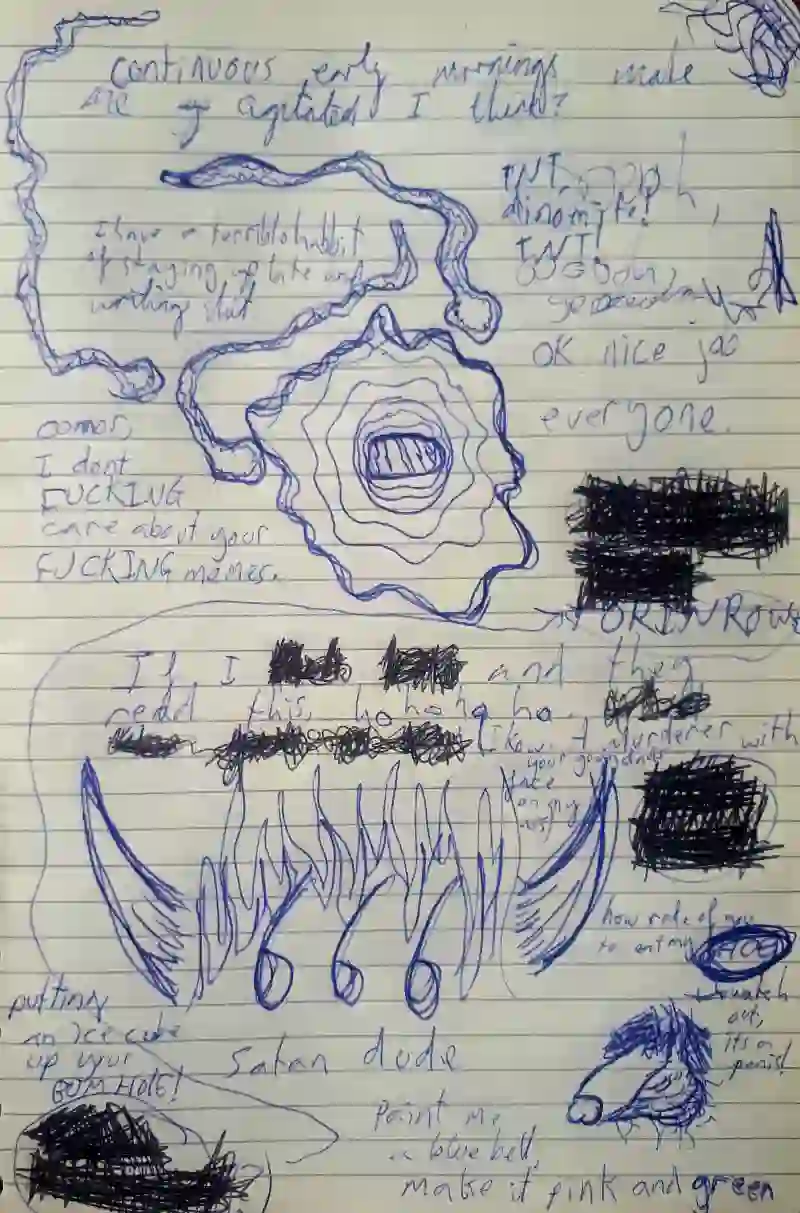 continuous early mornings make
me agitated I think?
I have a terrible habbit
of staying up late and
writing shit
TNT,
dinomyte!
TNT!
OK nice joo
everyone.
I dont
FUCKING
care about your
FUCKING memes.
If I and they
read this, ho ho ho ho.
I know a murderer with
your grandads
face
on my
how rude of you
to eat my
watch
out,
its a
penis!
putting
an ice cube
up your
BUM HOLE!
Satan dude
Paint me
a blue bell,
make it pink and green